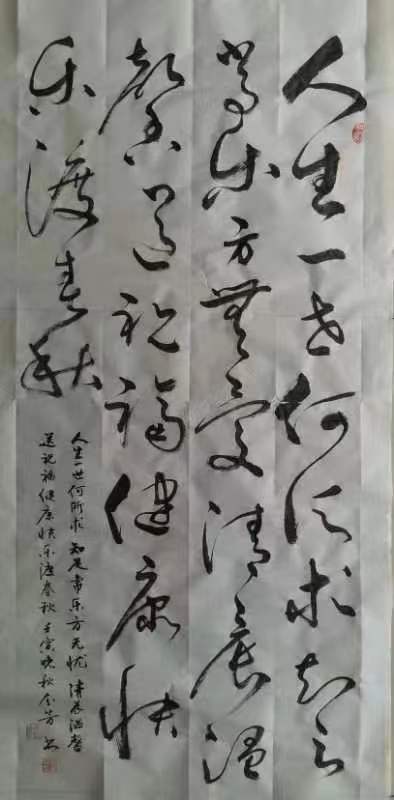 人生一世何所求知足
常乐方無忧清晨温
馨送祝福健康快
乐渡春秋
人生一世何所求 知足常乐方无忧 清晨温馨
送祝福健康快乐渡春秋 壬寅晚秋金芳书